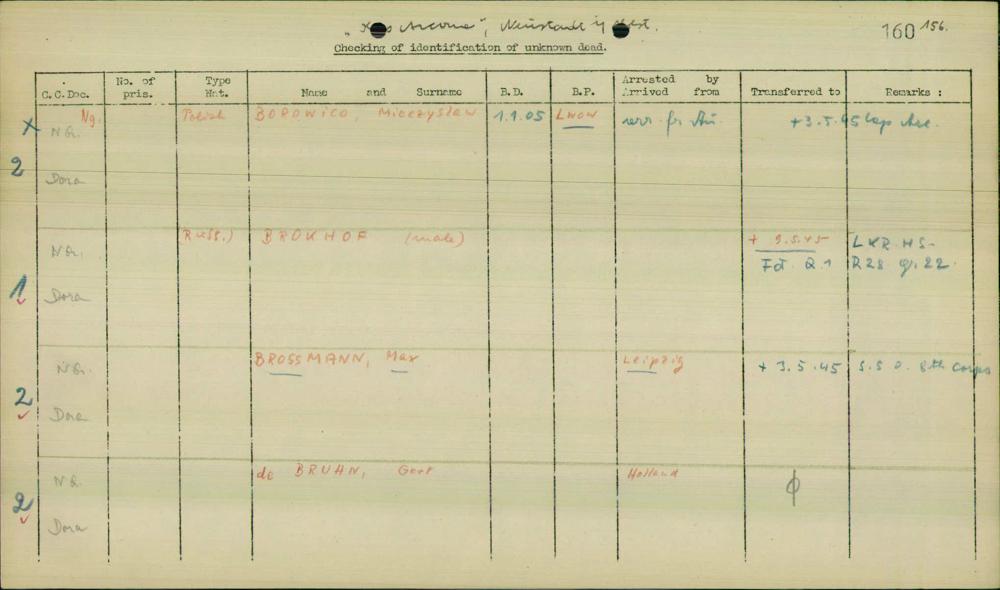 "Kap Arcona", Neustadt i/ Holst.
160 156.
Checking of identification of unknown dead.
C.C.Doc. No. of pris. Type Nat. Name and Surname B.D. B.P. Arrested by Arrived from Transferred to Remarks :
Ng. Polish BOROWICO, Mieczyslaw 1.1.05 Lwow arr. fr. Au. +3.5.45 Cap Arc.
X N G.
2 Dora
N G. Russ.) BROKHOF (male) + 9.5.45 LKR. HS-
Fd. Q.1 R28 gr. 22.
1 Dora
N G. BROSSMANN, Max Leipzig + 3.5.45 S.S O. 8th Corps
2 Dora
N G. de BRUHN, Gert Holland ϕ
2 Dora